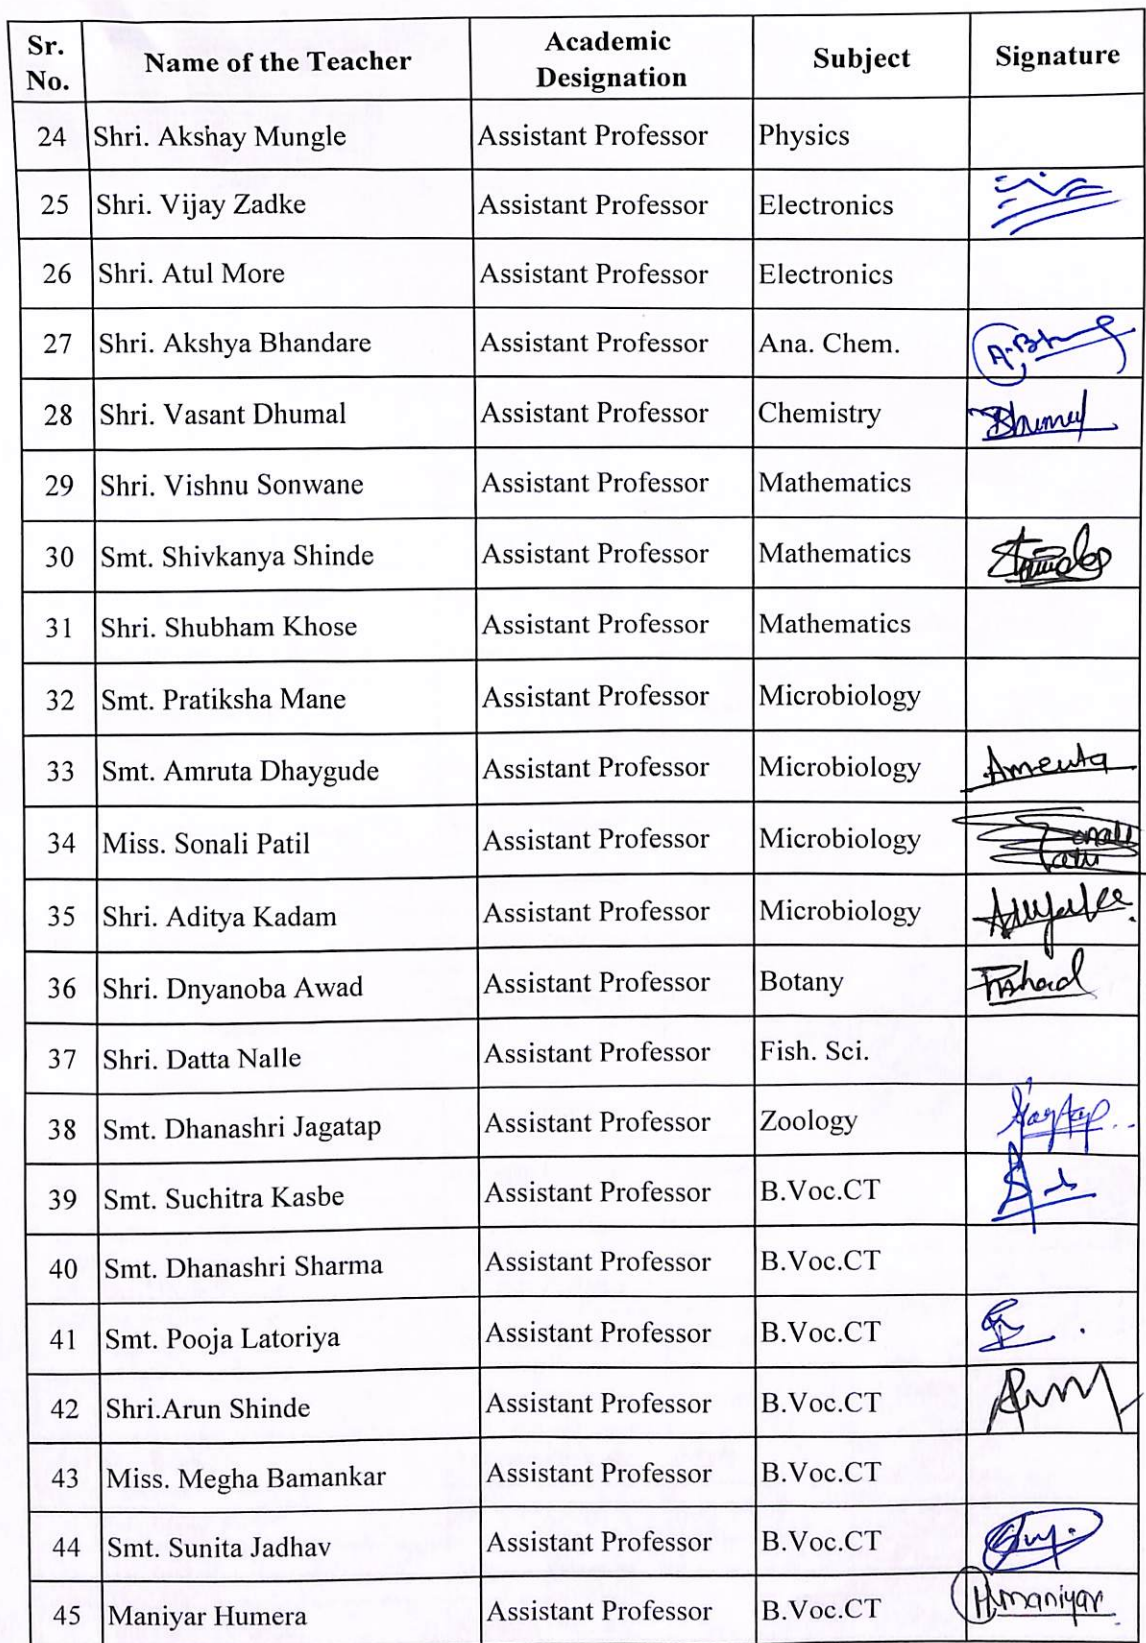 Sr. No. Name of the Teacher Academic Designation Subject Signature
24 Shri. Akshay Mungle Assistant Professor Physics
25 Shri. Vijay Zadke Assistant Professor Electronics
26 Shri. Atul More Assistant Professor Electronics
27 Shri. Akshya Bhandare Assistant Professor Ana. Chem.
28 Shri. Vasant Dhumal Assistant Professor Chemistry
29 Shri. Vishnu Sonwane Assistant Professor Mathematics
30 Smt. Shivkanya Shinde Assistant Professor Mathematics
31 Shri. Shubham Khose Assistant Professor Mathematics
32 Smt. Pratiksha Mane Assistant Professor Microbiology
33 Smt. Amruta Dhaygude Assistant Professor Microbiology
34 Miss. Sonali Patil Assistant Professor Microbiology
35 Shri. Aditya Kadam Assistant Professor Microbiology
36 Shri. Dnyanoba Awad Assistant Professor Botany
37 Shri. Datta Nalle Assistant Professor Fish. Sci.
38 Smt. Dhanashri Jagatap Assistant Professor Zoology
39 Smt. Suchitra Kasbe Assistant Professor B.Voc.CT
40 Smt. Dhanashri Sharma Assistant Professor B.Voc.CT
41 Smt. Pooja Latoriya Assistant Professor B.Voc.CT
42 Shri.Arun Shinde Assistant Professor B.Voc.CT
43 Miss. Megha Bamankar Assistant Professor B.Voc.CT
44 Smt. Sunita Jadhav Assistant Professor B.Voc.CT
45 Maniyar Humera Assistant Professor B.Voc.CT H.maniyar